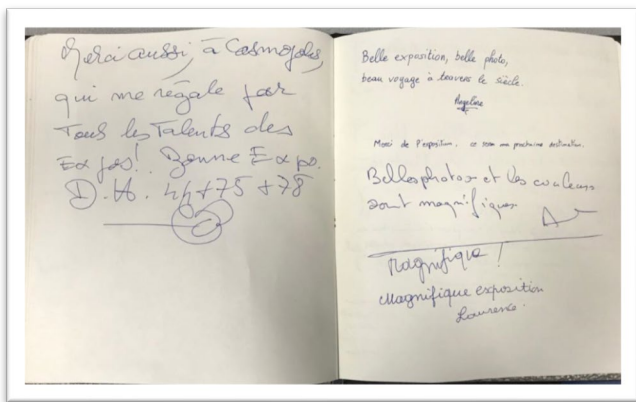 Merci aussi, à Cosmopolis,
qui me régale par
Tous les Talents des
Expos! Bonne Expo.
D.A. 44+75+78
Belle exposition, belle photo,
beau voyage à travers le siècle.
Angeline
Merci de l'exposition, ce sera ma prochaine destination.
Belles photos et les couleurs
sont magnifiques
Magnifique !
Magnifique exposition
Laurence.